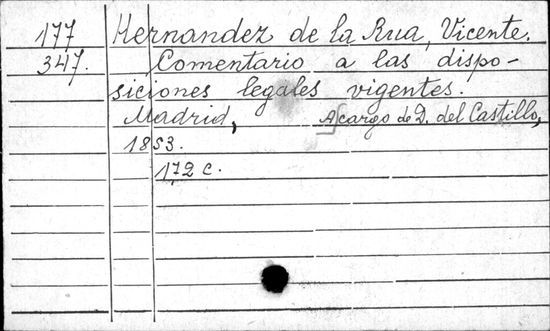 177 Hernandez de la Rua, Vicente.
347. Comentario a las dispo-
siciones legales vigentes.
Madrid, A cargo de D. del Castillo,
1853.
172 c.